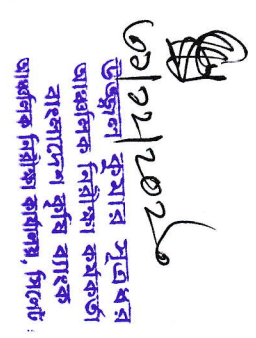 উজ্জ্বল কুমার সূত্রধর
আঞ্চলিক নিরীক্ষা কর্মকর্তা
বাংলাদেশ কৃষি ব্যাংক
আঞ্চলিক নিরীক্ষা কার্যালয়, সিলেট।